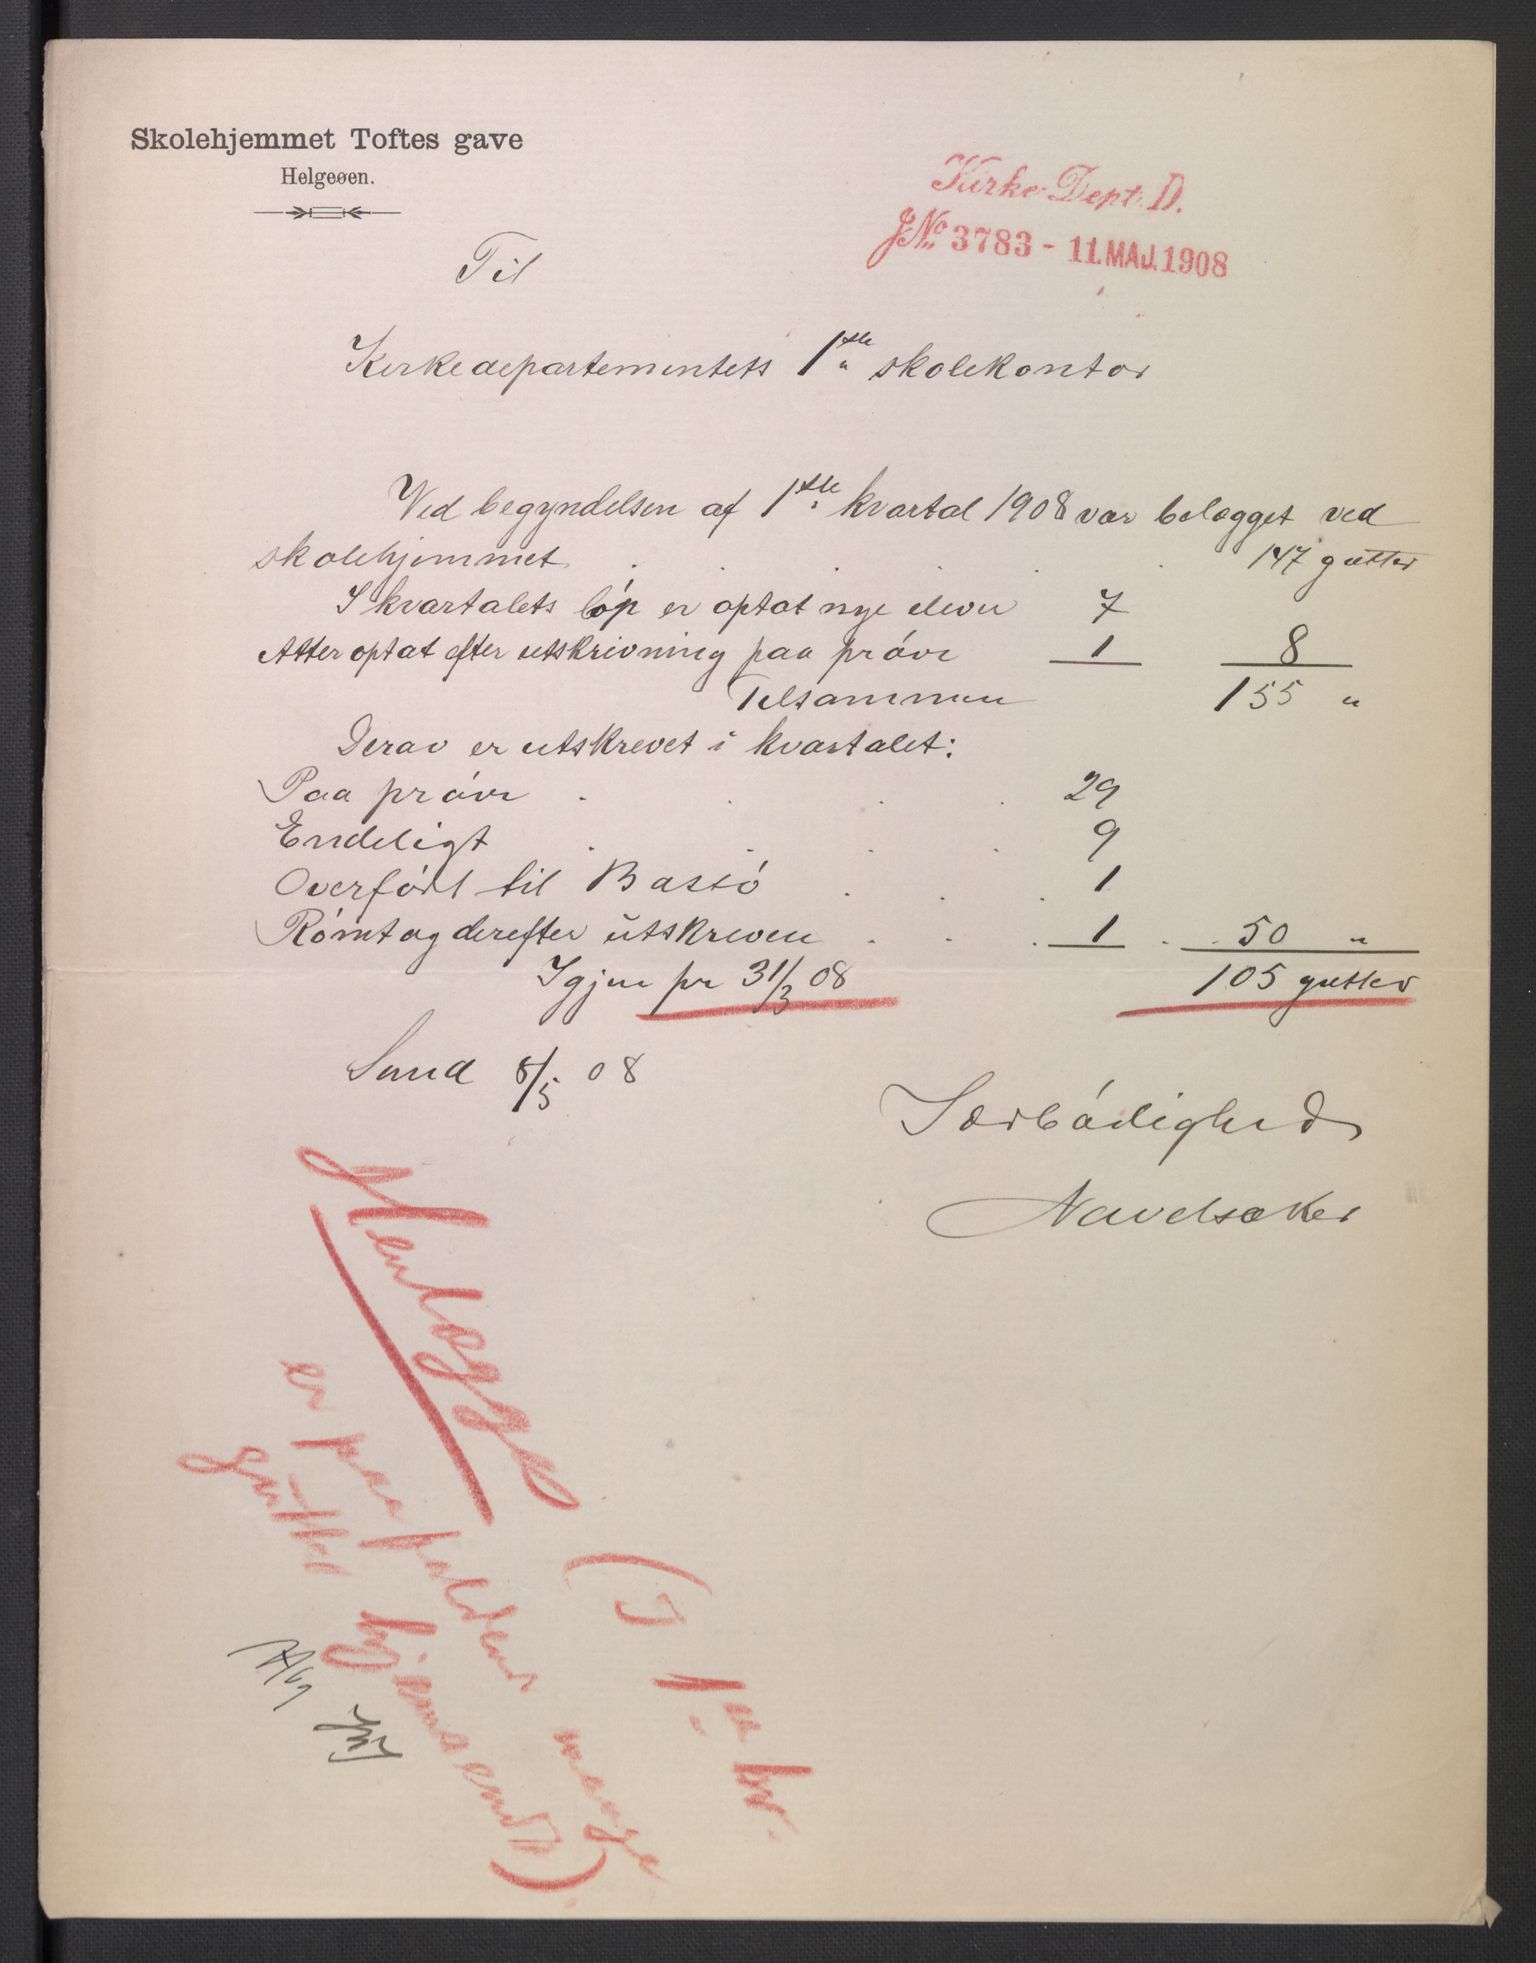 Skolehjemmet Toftes gave
Helgeøen.
Kirke-Dept. D.
JNo 3783 - 11.MAJ.1908
Til
Kirkedepartementets 1ste skolekontor
Ved begyndelsen af 1ste kvartal 1908 var belægget ved
skolehjemmet . . . . 147 gutter
I kvartalets løp er optat nye elever 7
Atter optat efter utskrivning paa prøve 1 8
Tilsammen 155 "
Derav er utskrevet i kvartalet:
Paa prøve . . . . 29
Endeligt . . . . 9
Overført til Bastø . . . 1
Rømt og derefter utskreven . . . 1 . . 50 "
Igjen pr 31/3 08 105 gutter
Sund 8/5 08
Ærbødighed
Navelsaker
Henlægges
(I 1ste kv.
er paafaldende mange
gutter hjemsendt).